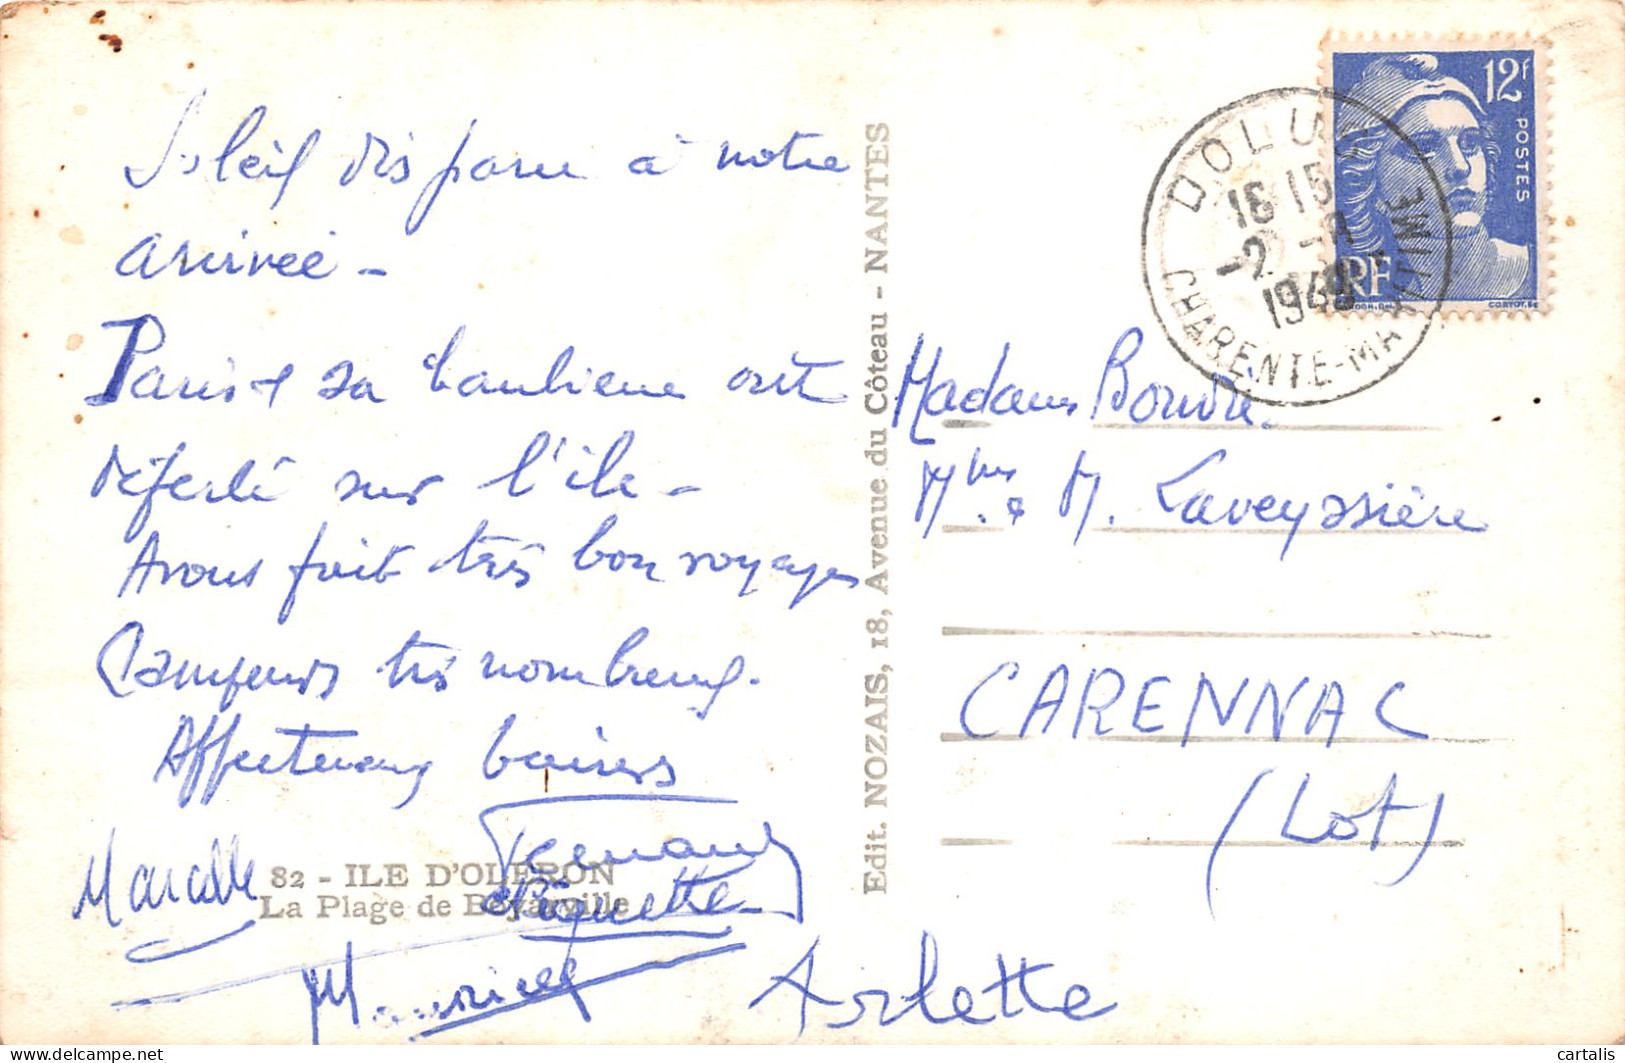 Soleil disparu à notre
arrivée -
Paris & sa banlieue ont
déferlé sur l'ile -
Avons fait très bon voyage
Campeurs très nombreux.
Affectueux baisers
Fernand
Marcelle
Huguette
Maurice
Arlette
82 - ILE D'OLERON
La Plage de Boyarville
Edit. NOZAIS, 18, Avenue du Côteau - NANTES
12f
POSTES
RF
DOLUS
16 15
1948
CHARENTE-MARITIME
Madame Bouvre
M. Laveyssière
CARENNAC
(Lot)
cartalis